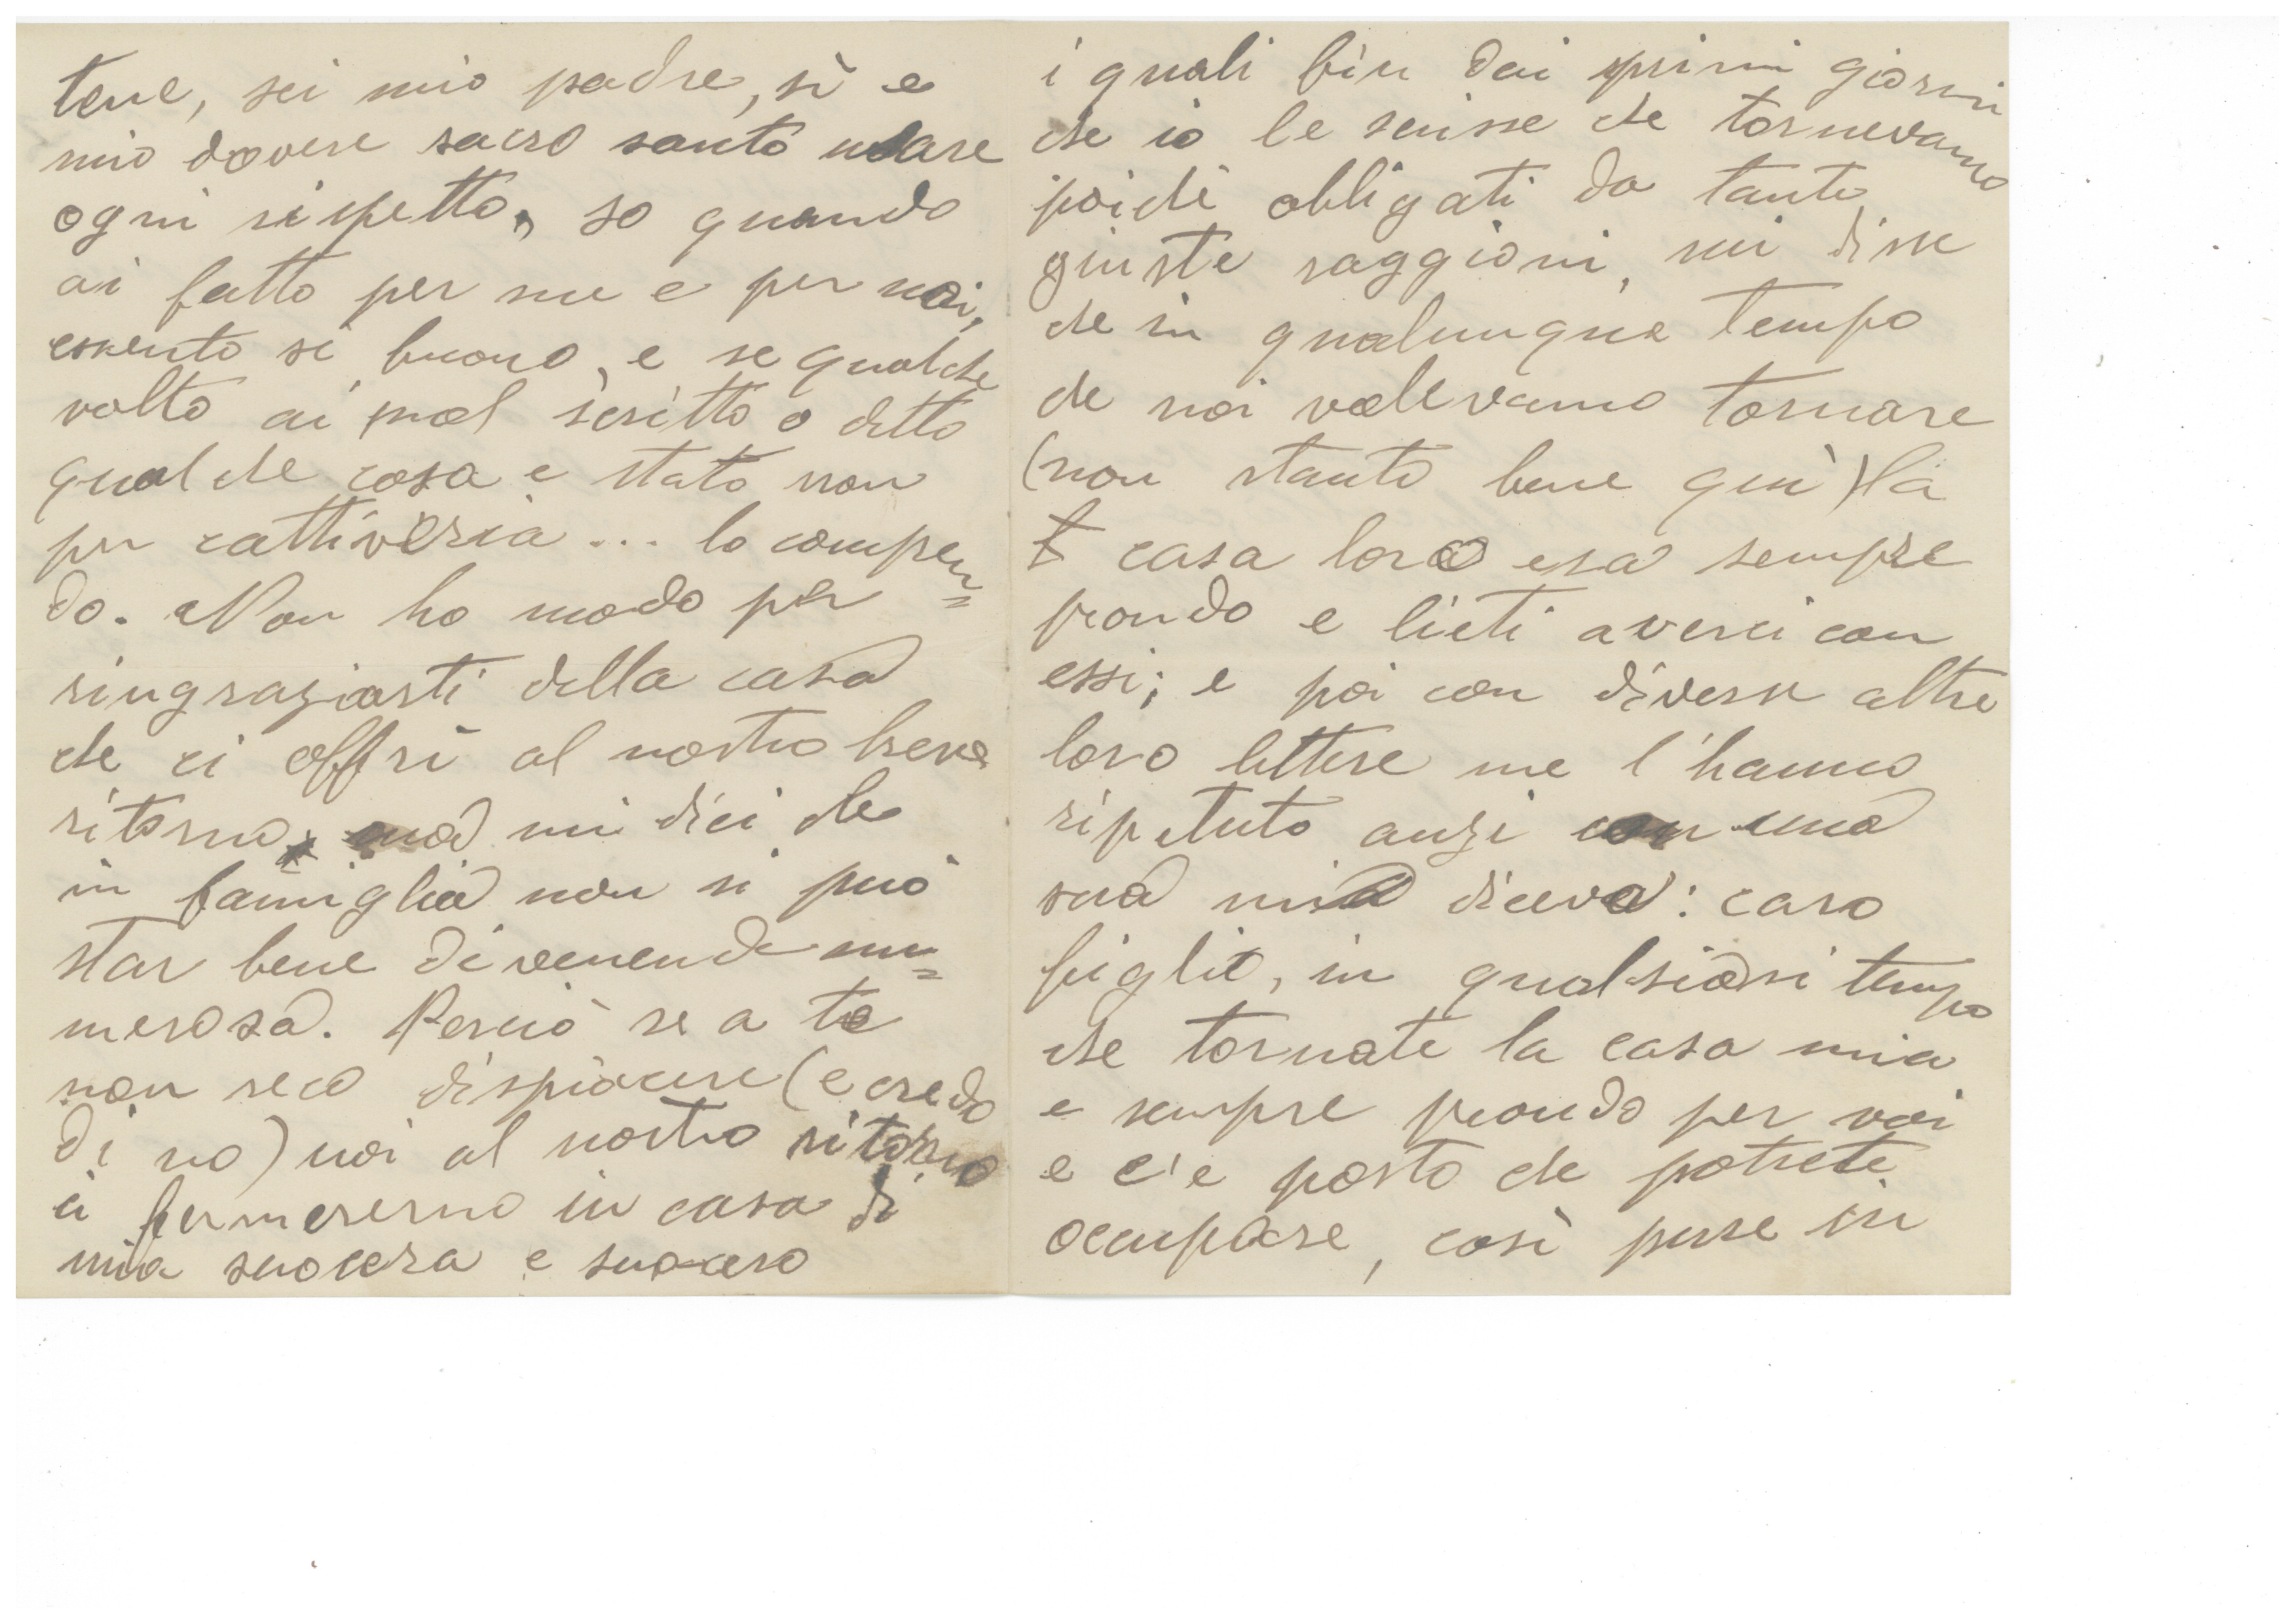 tene, sei mio padre, sì e
mio dovere sacro santo usare
ogni rispetto, so quando
ai fatto per me e per noi,
essento sì buono, e se qualche
volto ai mal scritto o detto
qualche cosa e stato non
per cattiveria ... lo compren=
do. Non ho modo per
ringraziarti della casa
che ci offri al nostro breve
ritorno, ma mi dici che
in famiglia non si può
star bene divenende nu=
merosa. Perciò se a te
non reco dispiacere (e credo
di no) noi al nostro ritorno
ci fermeremo in casa di
mia suocera e suocero
i quali fin dai primi giorni
che io le scrisse che tornevamo
poichè obligati da tante
giuste raggioni, mi disse
che in qualunque tempo
che noi volevamo tornare
(non stanto bene quì) la
casa loro era sempre
prondo e lieti averci con
essi; e poi con diverse altre
loro lettere me l'hanno
ripetuto anzi con una
sua mi diceva: caro
figlio, in qualsiasi tempo
che tornate la casa mia
e sempre prondo per voi
e c'e posto che potrete
ocupare, così pure in